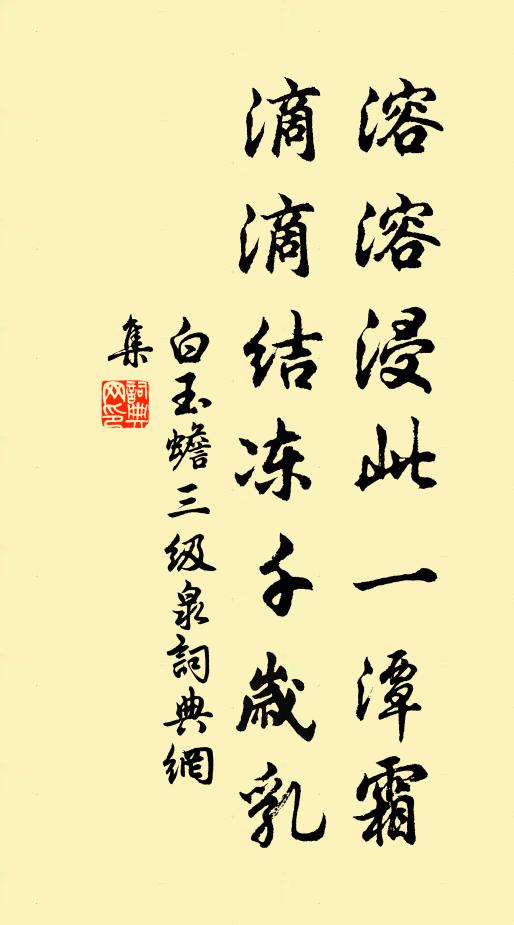 溶溶浸此一潭霜
滴滴结冻千歲乳
白玉蟾三级泉詞典網
集
詞典網印